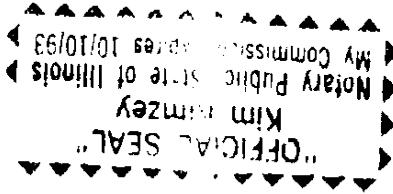 "OFFICIAL SEAL"
Kim
Notary Public, State of Illinois
My Commission Expires 10/10/93